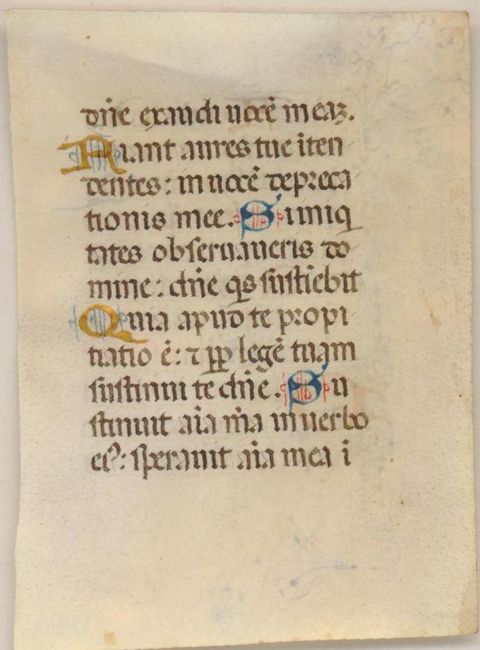 dn̄e exaudi uocē meaʒ.
Fiant aures tue īten
dentes: in uocē depreca
tionis mee. Si iniq
tates obseruaueris do
mine: dn̄e q̄s sustīebit
Quia apud te propi
tiatio ē: ⁊ ꝓpꝑ legē tuam
sustinui te dn̄e. Su
stinuit aīa m̄a in uerbo
eꝰ: sperauit aīa mea ī